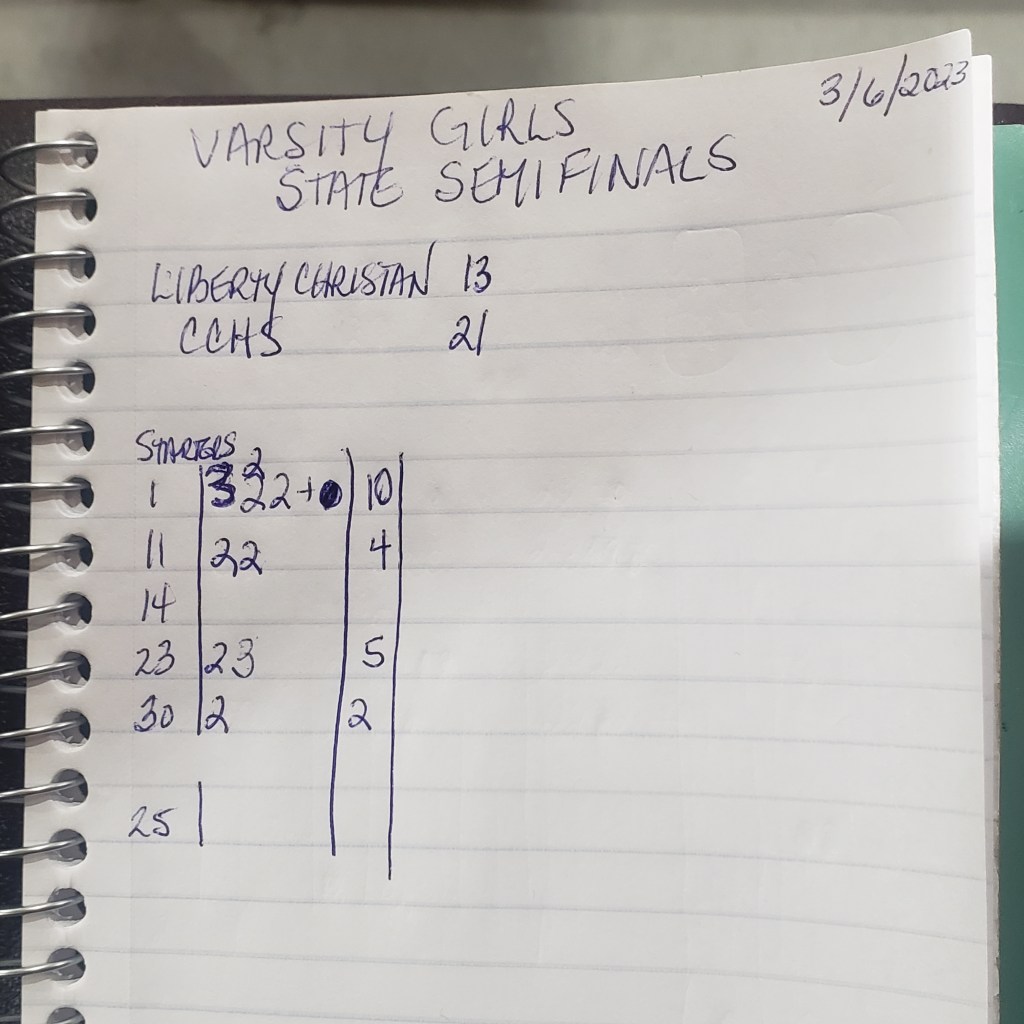 3/6/2023
VARSITY GIRLS
STATE SEMIFINALS
LIBERTY CHRISTAN 13
CCHS 21
STARTERS
2
1 322+ 10
11 22 4
14
23 23 5
30 2 2
25